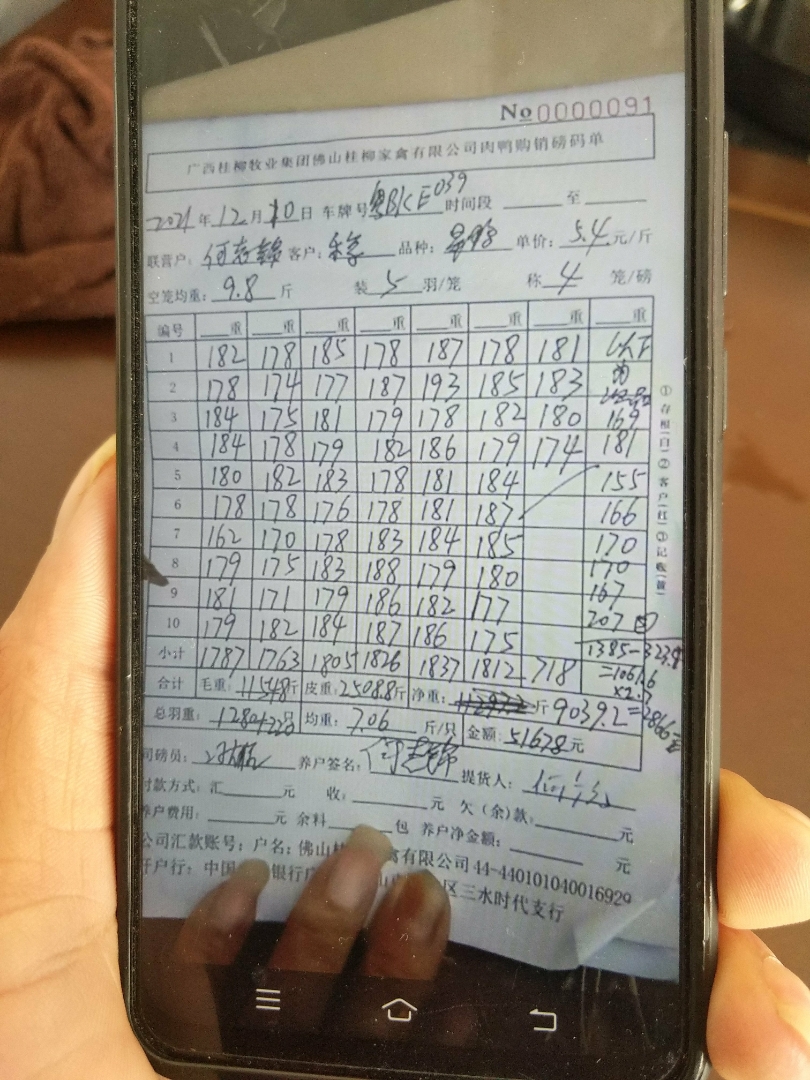 No 0000091
广西桂柳牧业集团佛山桂柳家禽有限公司肉鸭购销磅码单
2021年12月10日 车牌号 粤BKE039 时间段 至
联营户: 客户: 品种: 单价: 5.4元/斤
空笼均重: 9.8 斤 装 5 羽/笼 称 4 笼/磅
编号 重 重 重 重 重 重 重 重
1 182 178 185 178 187 178 181
2 178 174 177 187 193 185 183
3 184 175 181 179 178 182 180 169
4 184 178 179 182 186 179 174 181
5 180 182 183 178 181 184 155
6 178 178 176 178 181 187 166
7 162 170 178 183 184 185 170
8 179 175 183 188 179 180 170
9 181 171 179 186 182 177 167
10 179 182 184 187 186 175 207
小计 1787 1763 1805 1826 1837 1812 718 1385-323.4
=1061.6
×2.7
合计 毛重: 11548斤 皮重: 2508.8斤 净重: 斤 9039.2
总羽重: 1280+ 只 均重: 7.06 斤/只 金额: 51628元
司磅员: 养户签名: 提货人:
付款方式: 汇 元 收: 元 欠(余)款: 元
养户费用: 元 余料 包 养户净金额: 元
公司汇款账号: 户名: 佛山 禽有限公司 44-440101040016929
开户行: 中国 银行 区三水时代支行
①存根(白)②客户(红)③记账(黄)